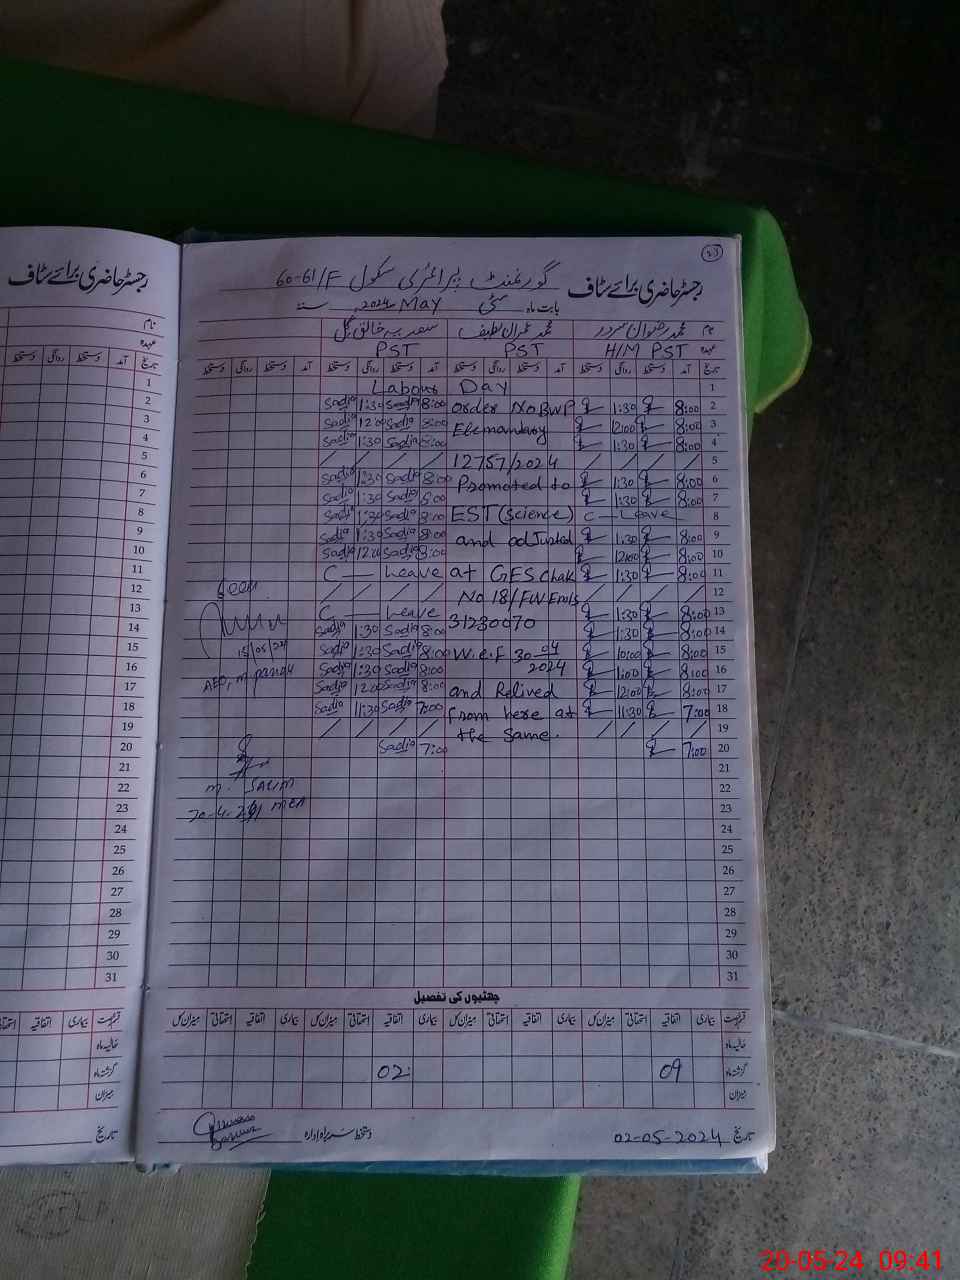 رجسٹر حاضری برائے سٹاف
نام
عہدہ
تاریخ آمد دستخط روانگی دستخط
1
2
3
4
5
6
7
8
9
10
11
12
13
14
15
16
17
18
19
20
21
22
23
24
25
26
27
28
29
30
31
قسم رخصت بیماری اتفاقیہ استحقاقی
حالیہ ماہ
گزشتہ ماہ
میزان
تاریخ
23
رجسٹر حاضری برائے سٹاف گورنمنٹ پرائمری سکول 60-61/F
بابت ماہ مئی May 2024 سنہ
نام محمد رضوان سرور محمد عمران لطیف سعدیہ خالق گل
عہدہ H/M PST PST PST
تاریخ آمد دستخط روانگی دستخط آمد دستخط روانگی دستخط آمد دستخط روانگی دستخط آمد دستخط روانگی دستخط
Labour Day 1
Sadia 1:30 Sadia 8:00 order No BWP 1:30 8:00 2
Sadia 12:00 Sadia 8:00 Elemantary 12:00 8:00 3
Sadia 1:30 Sadia 8:00 1:30 8:00 4
/ / / / 12757/2024 / / / / 5
Sadia 1:30 Sadia 8:00 Promoted to 1:30 8:00 6
Sadia 1:30 Sadia 8:00 1:30 8:00 7
Sadia 1:30 Sadia 8:00 EST (Science) C — Leave 8
Sadia 1:30 Sadia 8:00 and adJusted 1:30 8:00 9
Sadia 12:00 Sadia 8:00 12:00 8:00 10
C — Leave at GES Chak 1:30 8:00 11
Seen / / / / No 18/FW Emis / / / / 12
C — Leave 31230070 1:30 8:00 13
Sadia 1:30 Sadia 8:00 1:30 8:00 14
15/05/24 Sadia 1:30 Sadia 8:00 w.e.f 30-04-2024 10:00 8:00 15
AEO, Sadia 1:30 Sadia 8:00 1:00 8:00 16
Sadia 12:00 Sadia 8:00 and Relived 12:00 8:00 17
Sadia 11:30 Sadia 7:00 from here at 11:30 7:00 18
/ / / / the same. / / / / 19
Sadia 7:00 7:00 20
21
M. SALIM 22
MEA 23
24
25
26
27
28
29
30
31
چھٹیوں کی تفصیل
قسم رخصت بیماری اتفاقیہ استحقاقی میزان کل بیماری اتفاقیہ استحقاقی میزان کل بیماری اتفاقیہ استحقاقی میزان کل بیماری اتفاقیہ استحقاقی میزان کل
حالیہ ماہ
گزشتہ ماہ 09 02
میزان
تاریخ 02-05-2024 دستخط سربراہ ادارہ
20-05-24 09:41